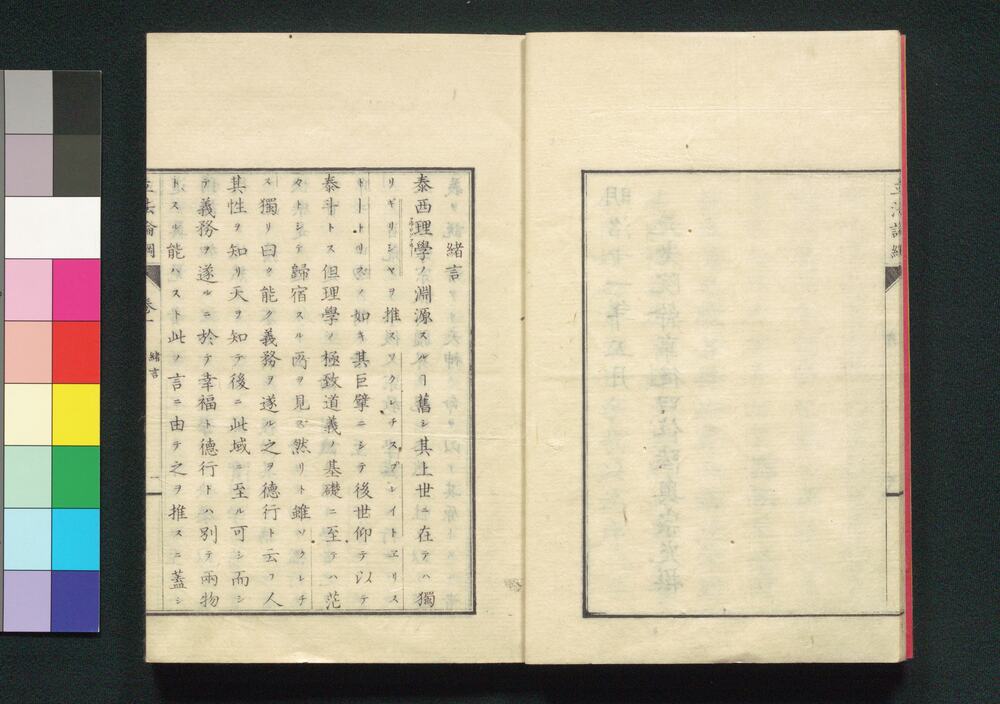 緒言
泰西理學ノ淵源スル日舊シ其上世ニ在テハ獨
リギリシヤヲ推スソクレチスプレイトエリス
トートリスノ如キ其巨擘ニシテ後世仰テ以テ
泰斗トス但理學ノ極致道義ノ基礎ニ至テハ茫
タトシテ歸宿スル所ヲ見ズ然リト雖ソクレチ
ス獨リ曰ク能ク義務ヲ遂ル之ヲ德行ト云フ人
其性ヲ知リ天ヲ知テ後ニ此域ニ至ル可シ而シ
テ義務ヲ遂ルニ於テ幸福ト德行トハ別テ兩物
トスル能ハスト此ノ言ニ由テ之ヲ推スニ蓋シ
立法論綱
卷一
緒言
一